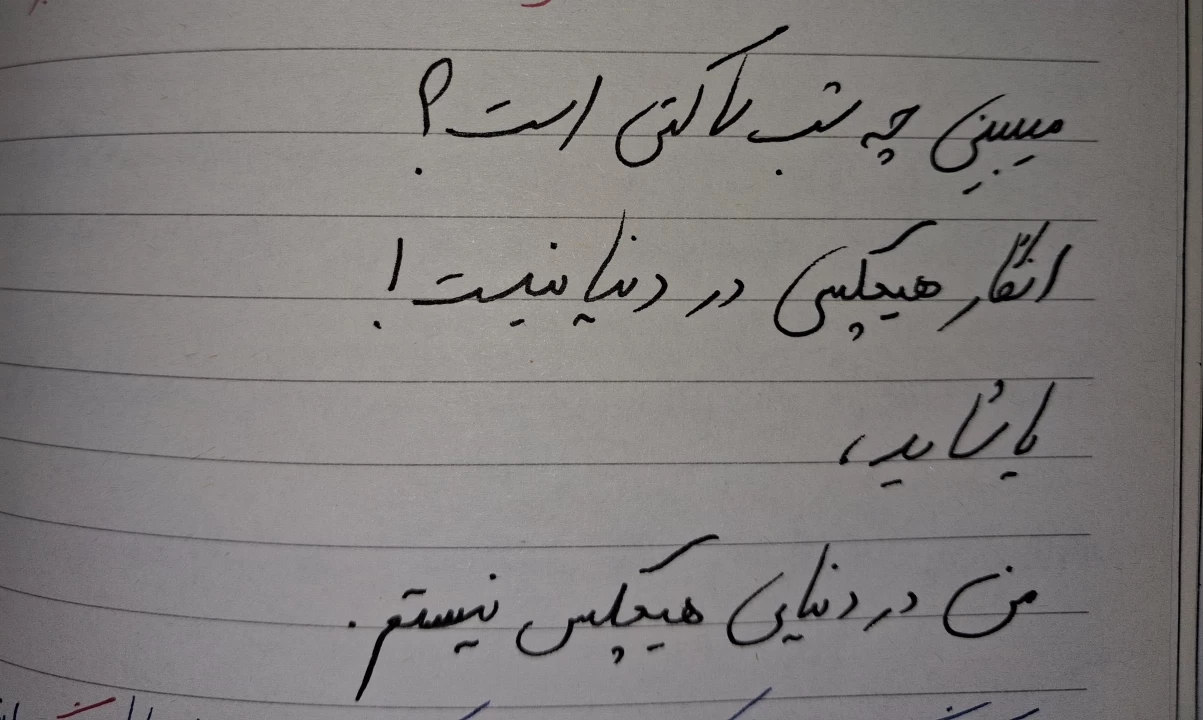 میبینی چه شب ساکتی است؟
انگار هیچکسی در دنیا نیست!
یا شاید،
من در دنیایی هیچکس نیستم.